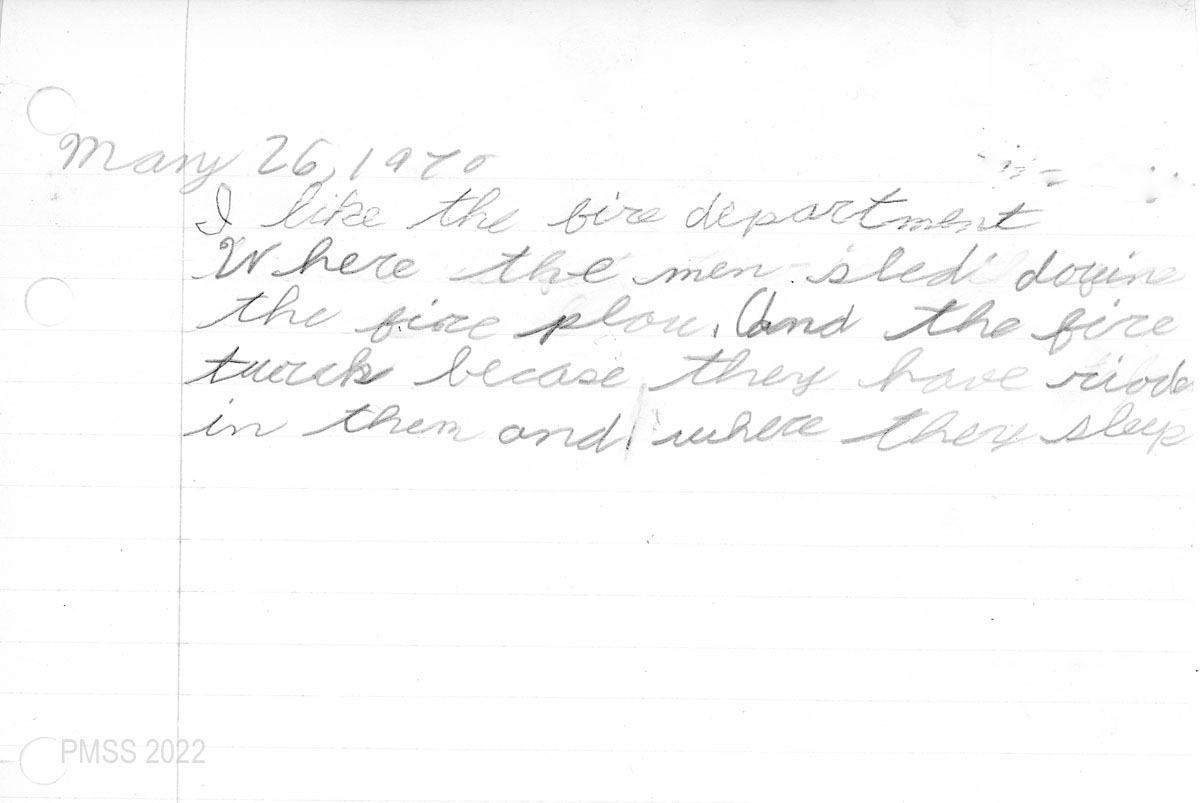 Many 26, 1970
I like the fire department
Where the men sled downe
the fire plow. And the fire
turck becase they have riode
in them and where they sleep
PMSS 2022